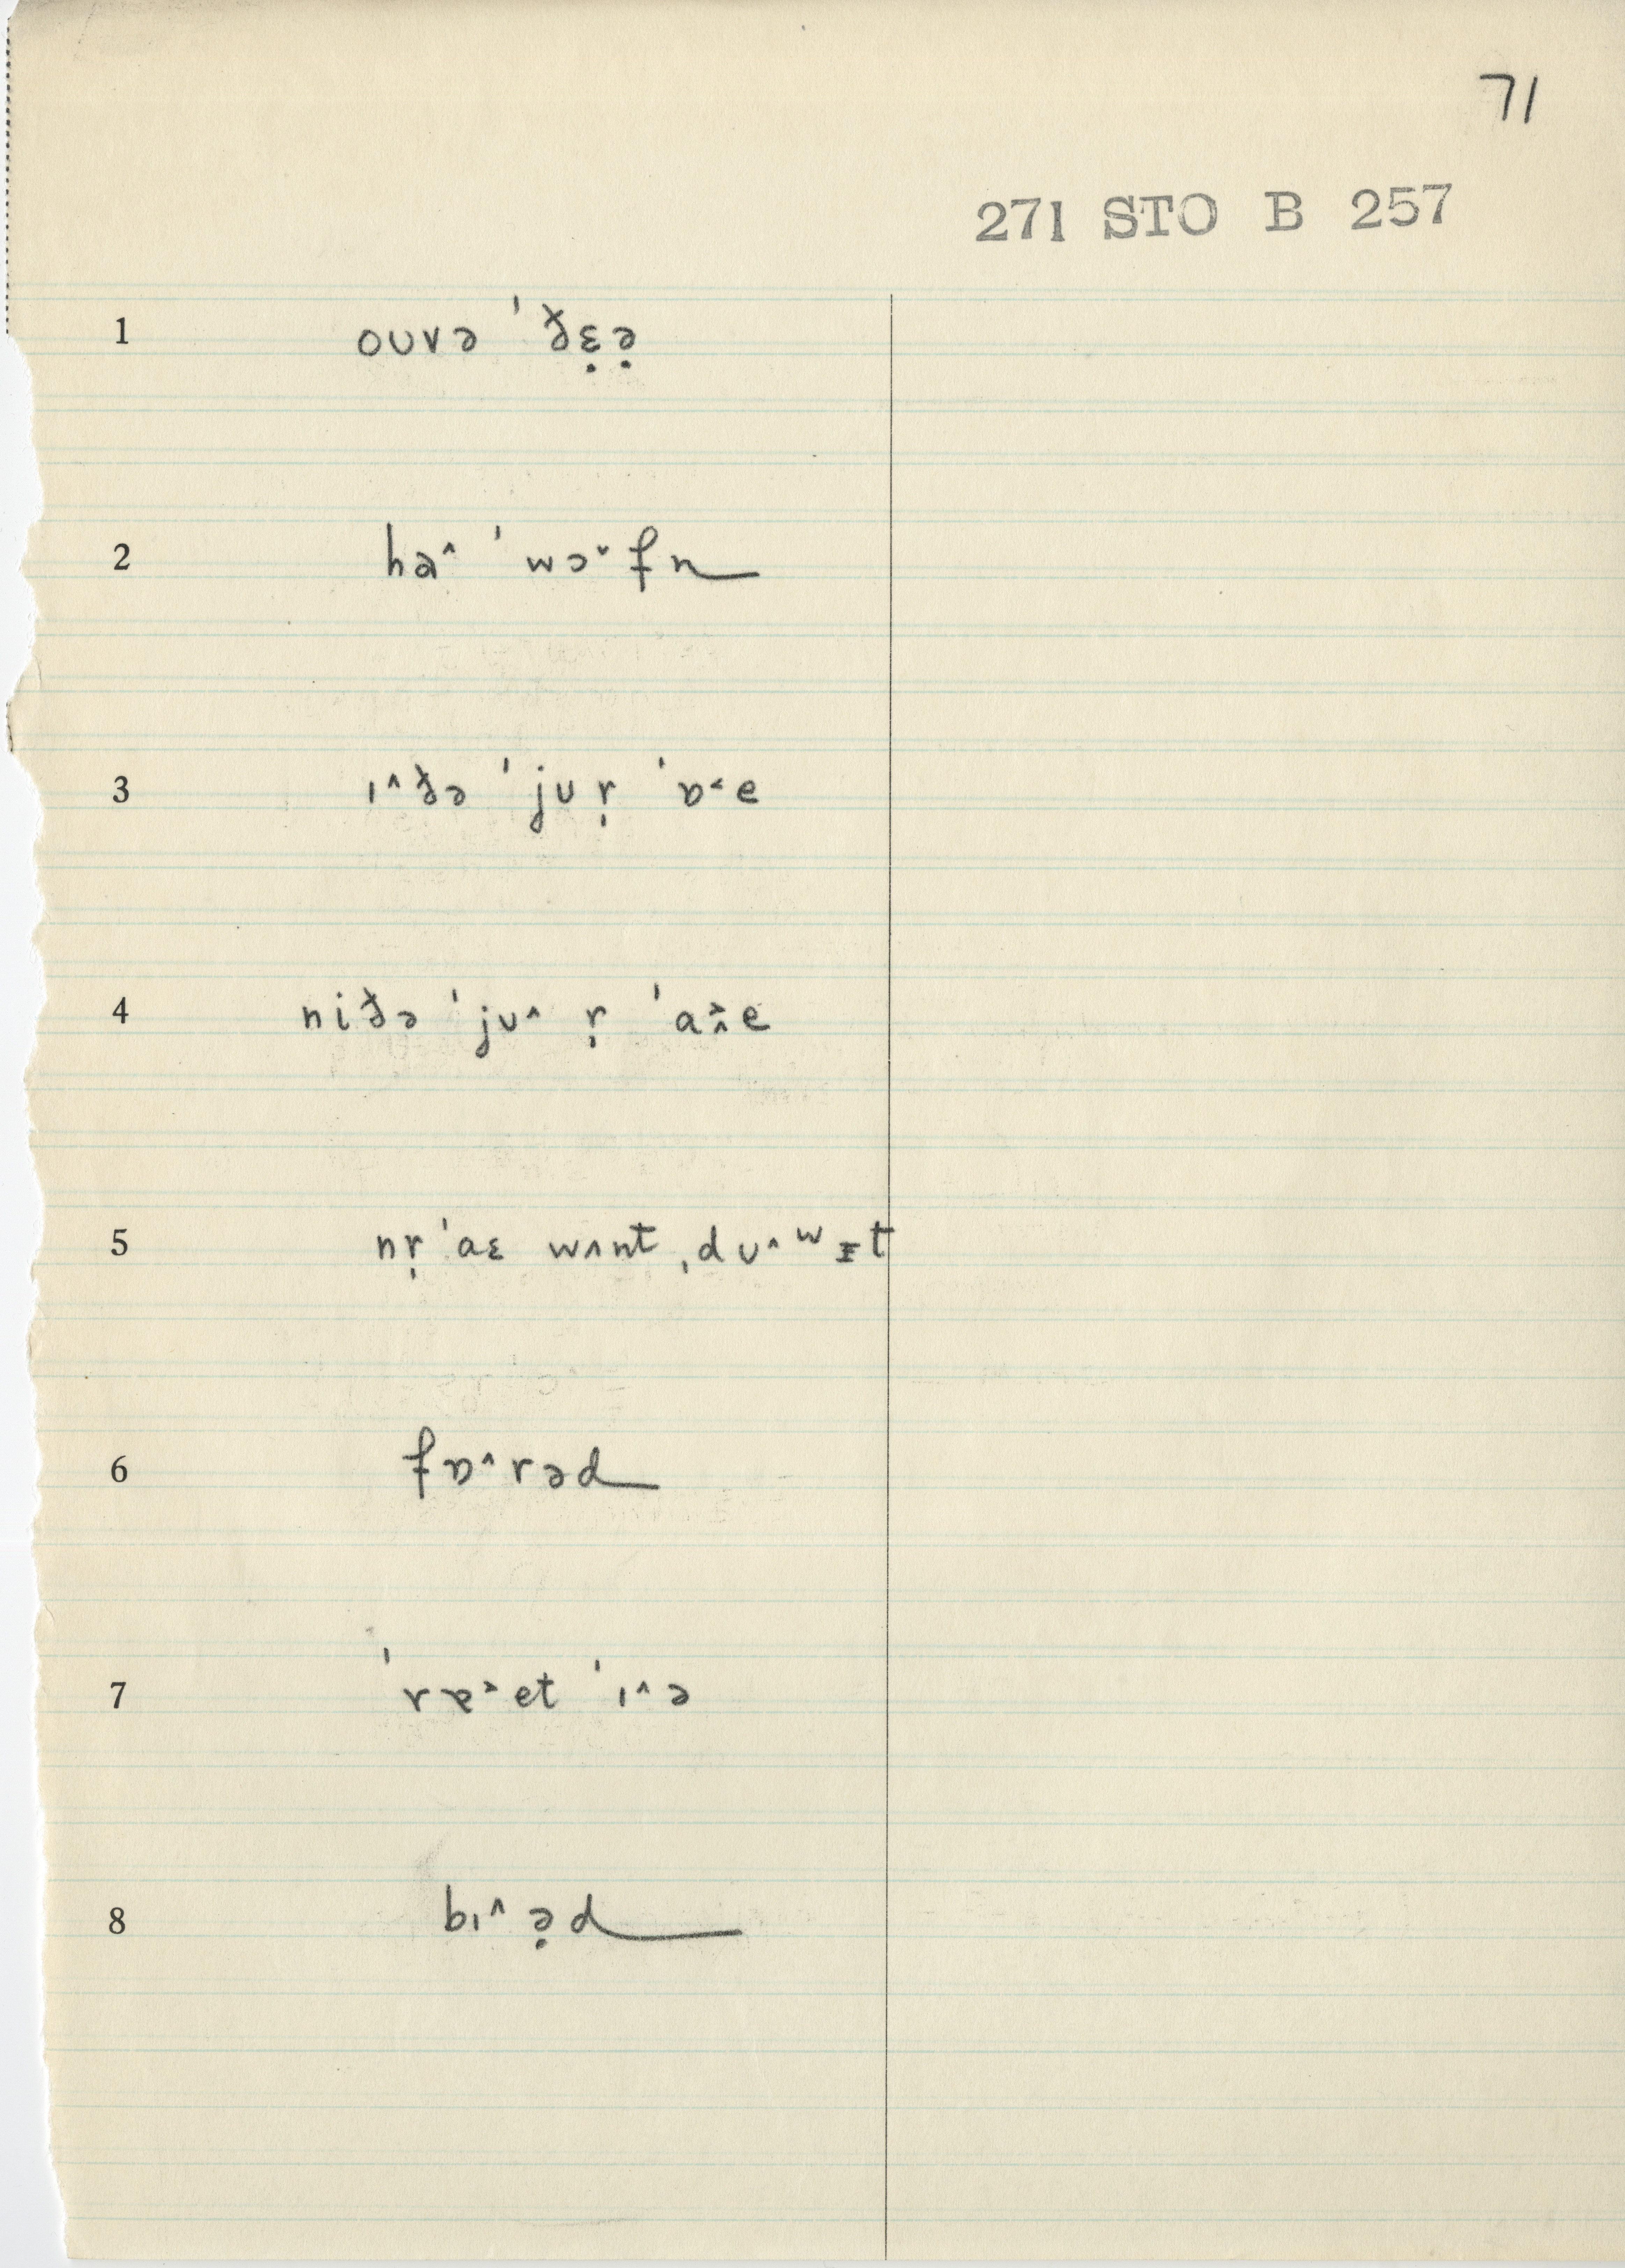 71
271 STO B 257
1 oʊvə ˈðɛ̣ə̣
2 hɑ^ ˈwɔ˅fn
3 ɪ^ðə ˈjʊ ṛ ˈɒ˂e
4 niðə ˈjʊ^ ṛ ˈa˃^e
5 nṛ ˈaɛ wʌnt ˌdʊ^ʷɪt
6 fɒ^rəd
7 ˈrɐ˃et ˈɪ^ə
8 bɪ^ ə̣d